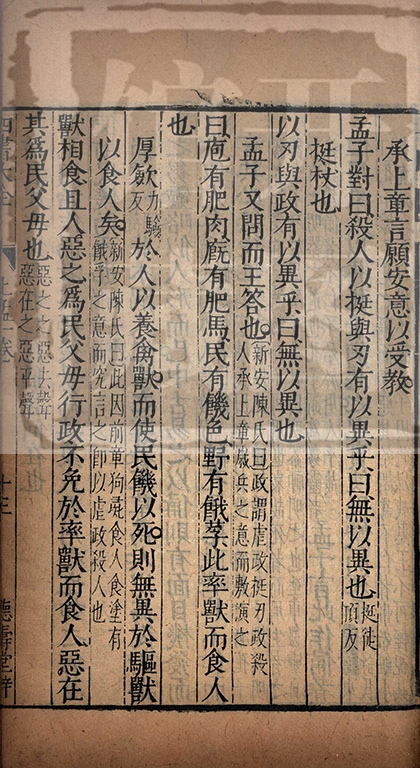 承上章言願安意以受教
孟子對曰殺人以挺與刃有以異乎曰無以異也挺徒頂反
挺杖也
以刃與政有以異乎曰無以異也
孟子又問而王答也新安陳氏曰政謂虐政挺刃政殺人承上章賊兵之意而敷演之
曰庖有肥肉廐有肥馬民有饑色野有餓莩此率獸而食人
也
厚斂力驗反於人以養禽獸而使民饑以死則無異於驅獸
以食人矣新安陳氏曰此因前章狗彘食人食塗有餓莩之意而究言之卽以虐政殺人也
獸相食且人惡之爲民父母行政不免於率獸而食人惡在
其爲民父母也惡之之惡去聲惡在之惡平聲
四書大全 上孟一卷 十三 德壽堂梓